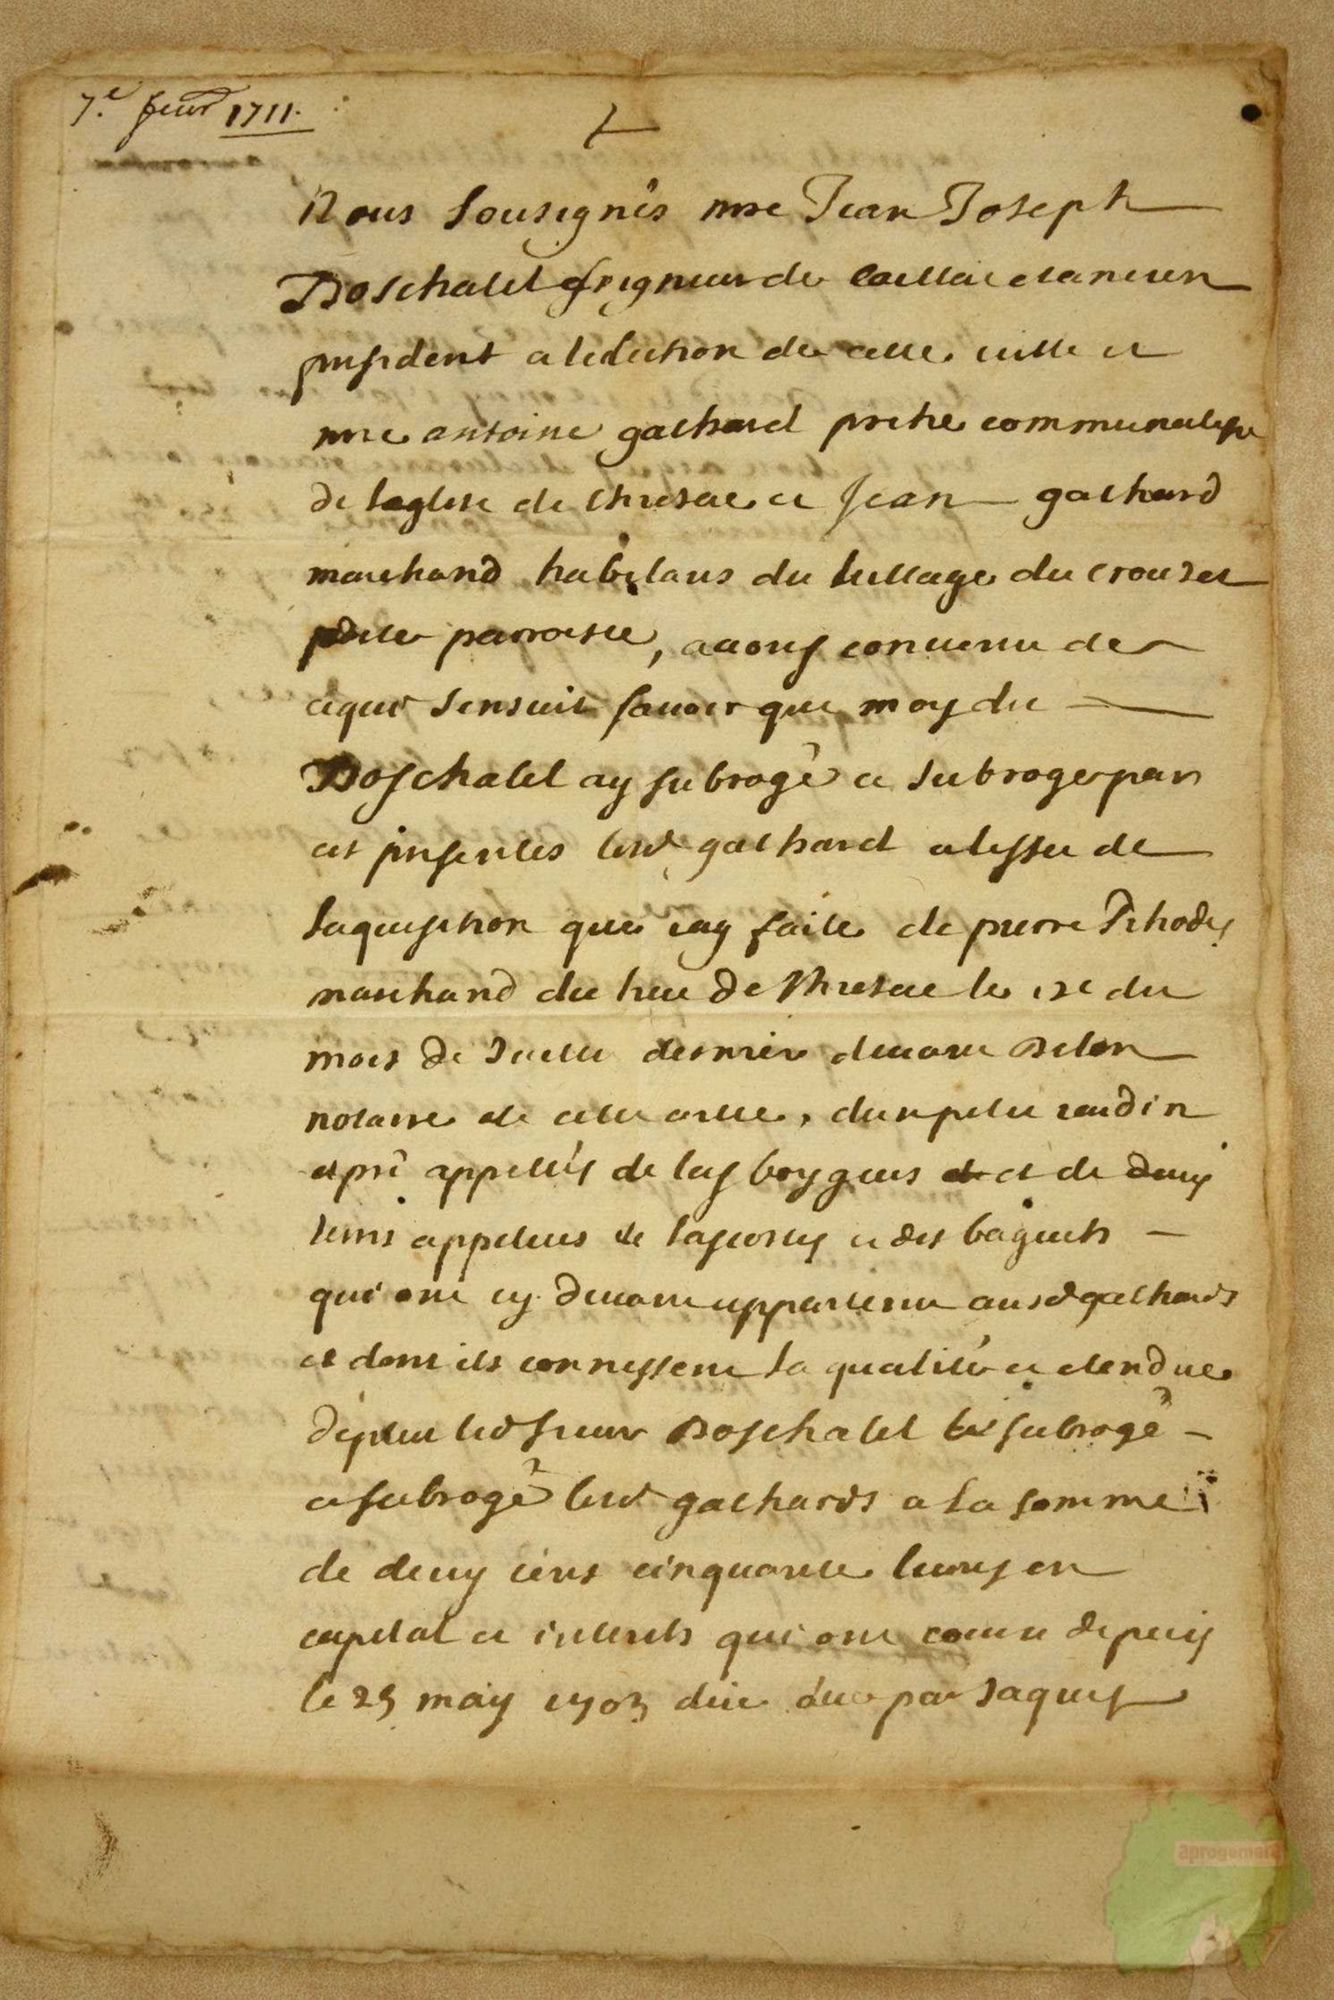 7.e feur 1711.
Nous sousignés mre Jean Joseph
Boschatel seigneur de Caillac et ancien
president a lelection de cette ville et
mre antoine gachard pretre communaliste
de leglise de thiesac et Jean gachard
marchand habitans du village du crouzet
parroisse, avons convenu de
ce qui sensuit savoir que moy du
Boschatel ay subrogé et subroge par
ces presentes lesd gachard a leffet de
laquisition que iay faite de pierre Rhodes
marchand du lieu de thiesac le du
mois de dernier devant
notaire de cette ville, dun petit iardin
et pré appellés de las boygues et de deux
terres appellees de et des baguets
qui ont cy devant appartenu ausd gachards
et dont ils connessent la qualité et etendue
deplus led sieur Boschatel subrogé
et subrogé lesd gachards a la somme
de deux cens cinquante livres en
capital et interets qui ont couru depuis
le 25 may 1703 due par Jaques
aprogemere